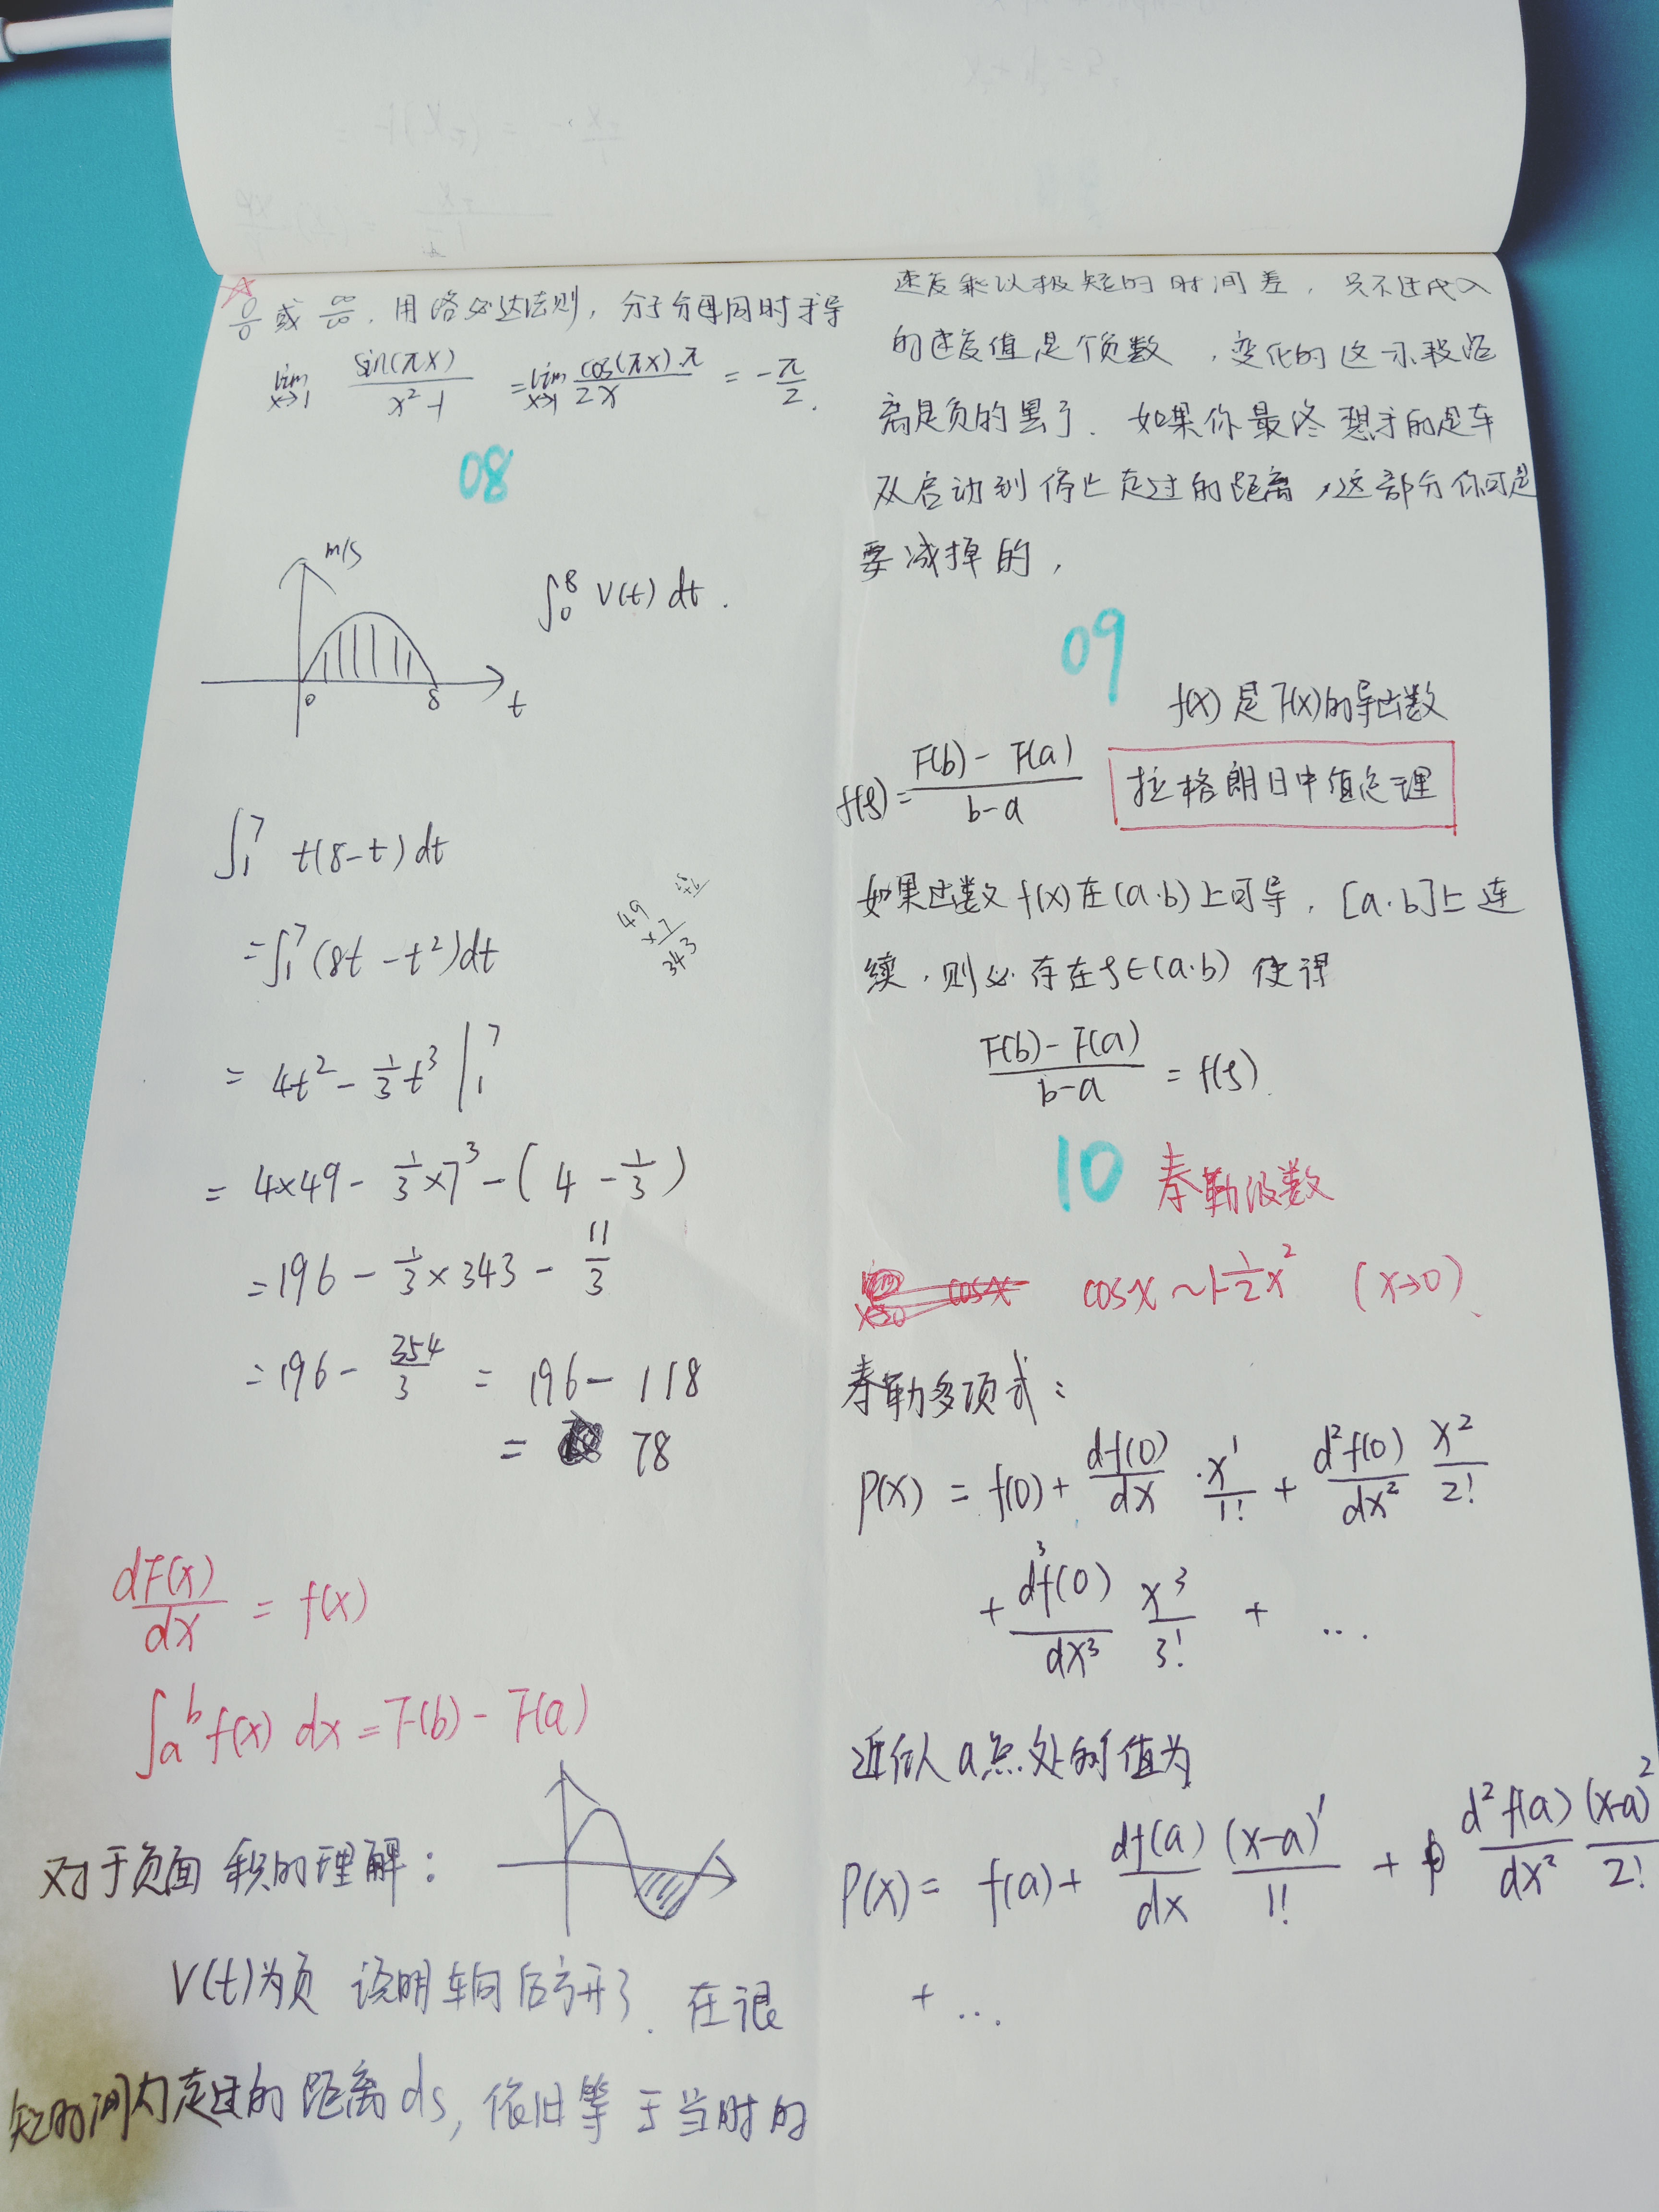 0/0 或 ∞/∞, 用洛必达法则, 分子分母同时求导
lim x→1 sin(πx)/(x²-1) = lim x→1 cos(πx)·π/2x = -π/2.
08
m/s
0 8 t
∫₀⁸ V(t) dt.
∫₁⁷ t(8-t) dt
=∫₁⁷ (8t-t²)dt
49
×7
343
= 4t² - 1/3 t³ |₁⁷
= 4×49 - 1/3×7³ - (4 - 1/3)
=196 - 1/3×343 - 11/3
=196 - 354/3 = 196 - 118
= 78
dF(x)/dx = f(x)
∫ₐᵇ f(x) dx = F(b) - F(a)
对于负面积的理解:
V(t)为负 说明车向后方开了. 在很
短时间内走过的距离ds, 依旧等于当时的
速度乘以极短的时间差, 只不过代入
的速度值是个负数, 变化的这小段距
离是负的罢了. 如果你最终想求的是车
从启动到停止走过的距离, 这部分你可是
要减掉的,
09
f(x) 是 F(x)的导函数
f(ξ) = (F(b) - F(a))/(b-a) 拉格朗日中值定理
如果函数 f(x)在(a·b)上可导, [a·b]上连
续, 则必存在ξ∈(a·b) 使得
(F(b) - F(a))/(b-a) = f(ξ).
10 泰勒级数
lim x→0 cosx cosx ~ 1-1/2x² (x→0).
泰勒多项式:
P(x) = f(0) + df(0)/dx · x¹/1! + d²f(0)/dx² x²/2!
+ d³f(0)/dx³ x³/3! + ...
近似a点处的值为
P(x) = f(a) + df(a)/dx (x-a)¹/1! + d²f(a)/dx² (x-a)²/2!
+ ...